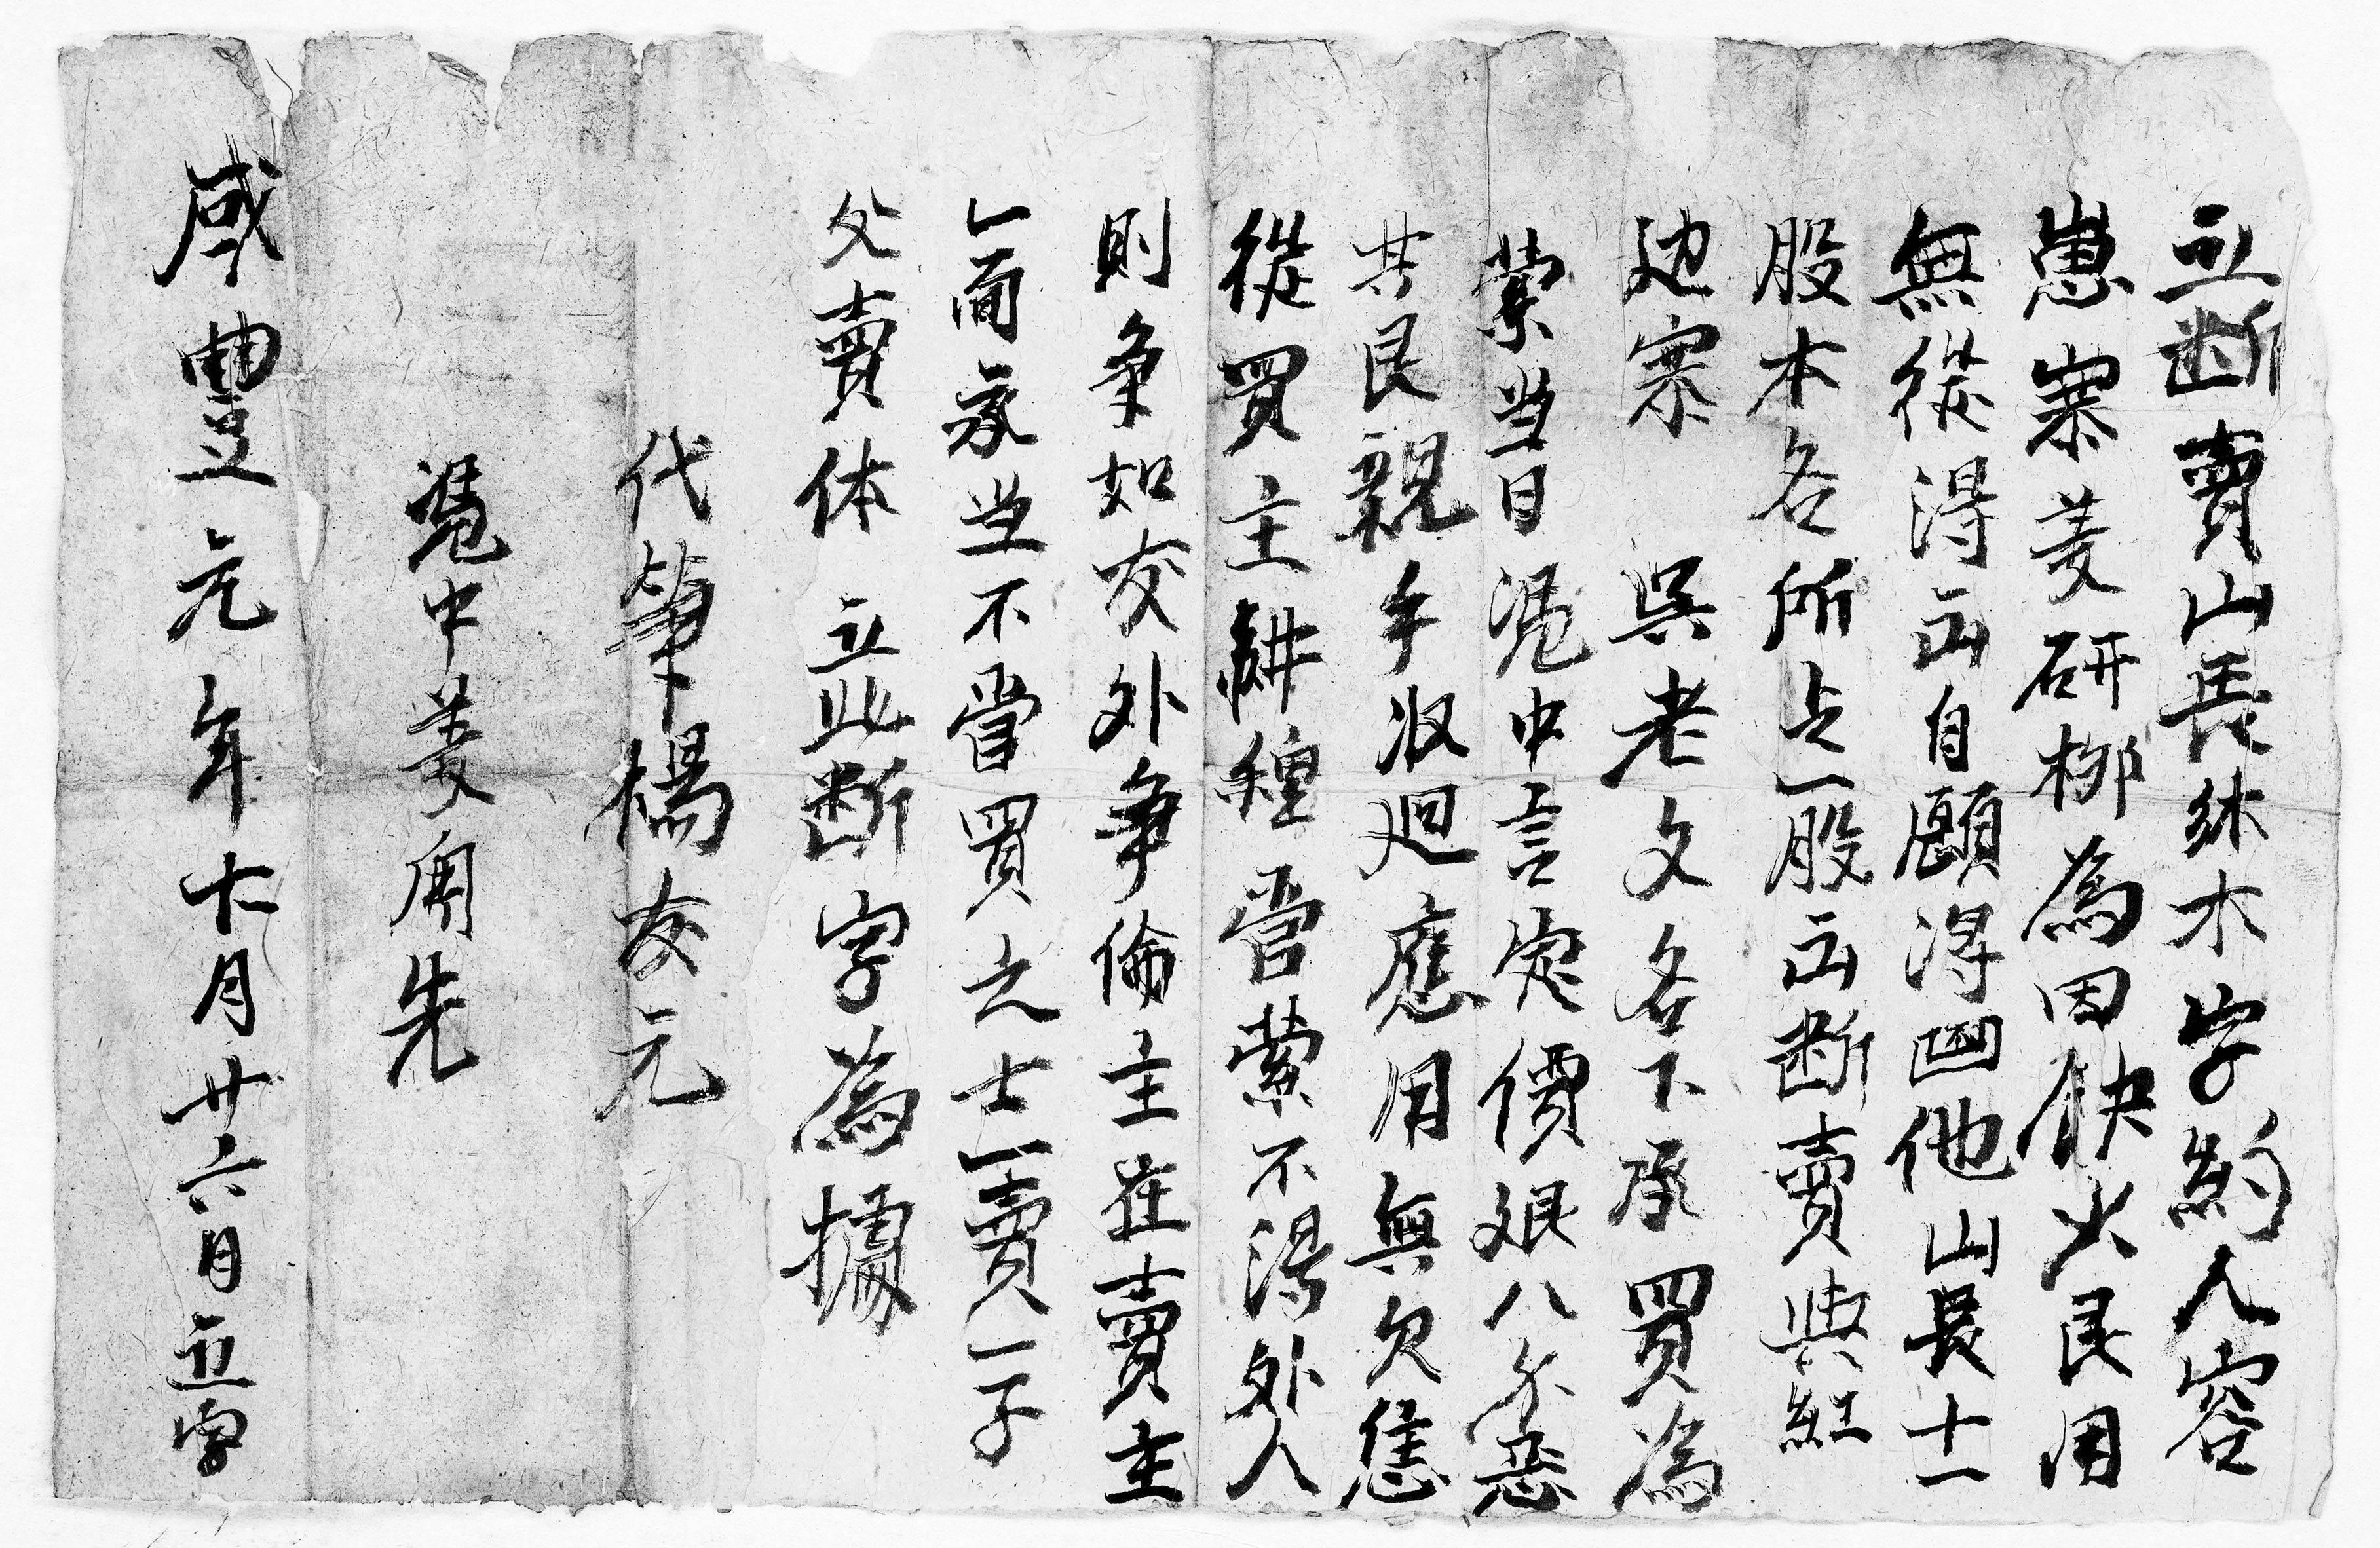 立断賣山長沐木字約人容
崽寨姜研柳為因缺火艮用
無從得出自願得四他山長十一
股本名所占一股出断賣與紅
边寨 吳老文名下承買為
業当日凴中言定價艰八分恶
共艮親手収廻應用無欠恁
從買主耕種管業不得外人
則争如有外争倫主在賣主
上前承当不管買主之士一賣一子
父賣休 立此断字為據
代筆楊友元
凴中姜開先
咸豐元年十月廿六日立字